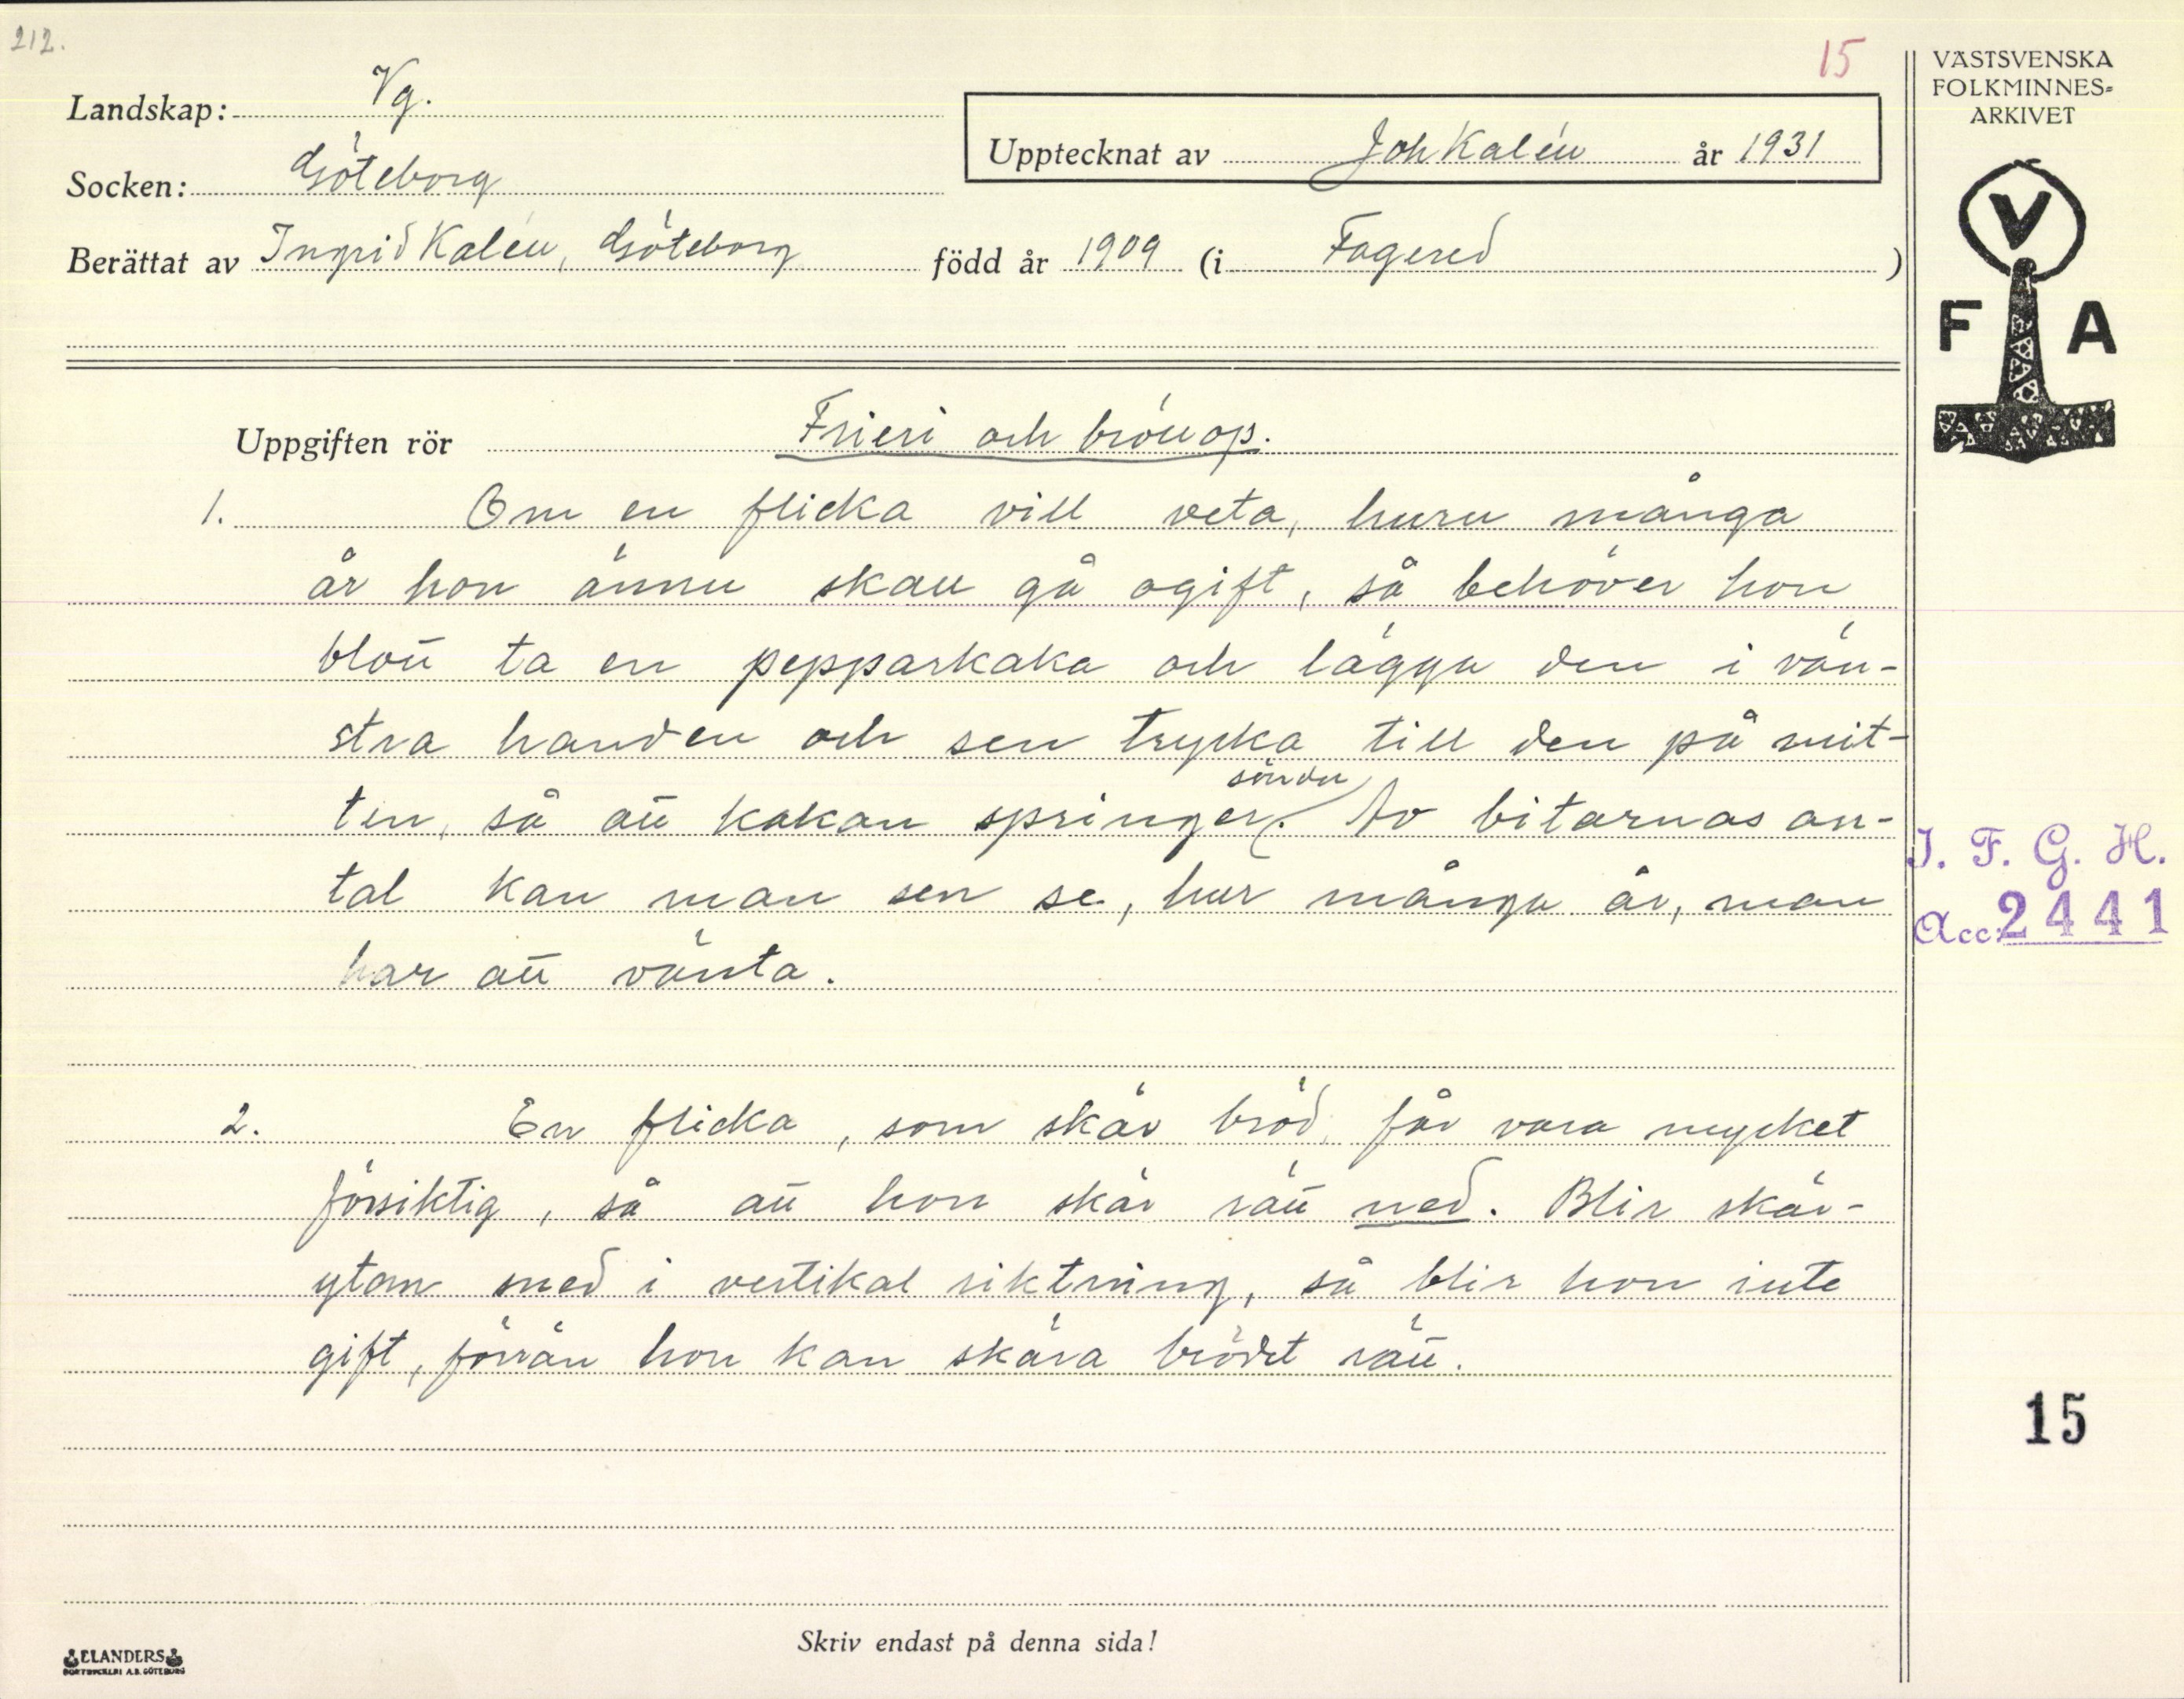 212.
15
VÄSTSVENSKA
FOLKMINNES=
ARKIVET
Landskap: Vg.
Upptecknat av Joh Kalén år 1931
Socken: Göteborg
Berättat av Ingrid Kalén, Göteborg född år 1909 (i Fagered )
V
F A
Uppgiften rör Frieri och bröllop.
1. Om en flicka vill veta, huru många
år hon ännu skall gå ogift, så behöver hon
blott ta en pepparkaka och lägga den i vän-
stra handen och sen trycka till den på mit-
ten, så att kakan springer sönder. Av bitarnas an-
tal kan man sen se, hur många år, man
har att vänta.
J. F. G. H.
Acc: 2441
2. En flicka, som skär bröd, får vara mycket
försiktig, så att hon skär rätt ned. Blir skär-
ytan sned i vertikal riktning, så blir hon inte
gift, förrän hon kan skära brödet rätt.
15
Skriv endast på denna sida!
ELANDERS
BOKTRYCKERI A.B. GÖTEBORG